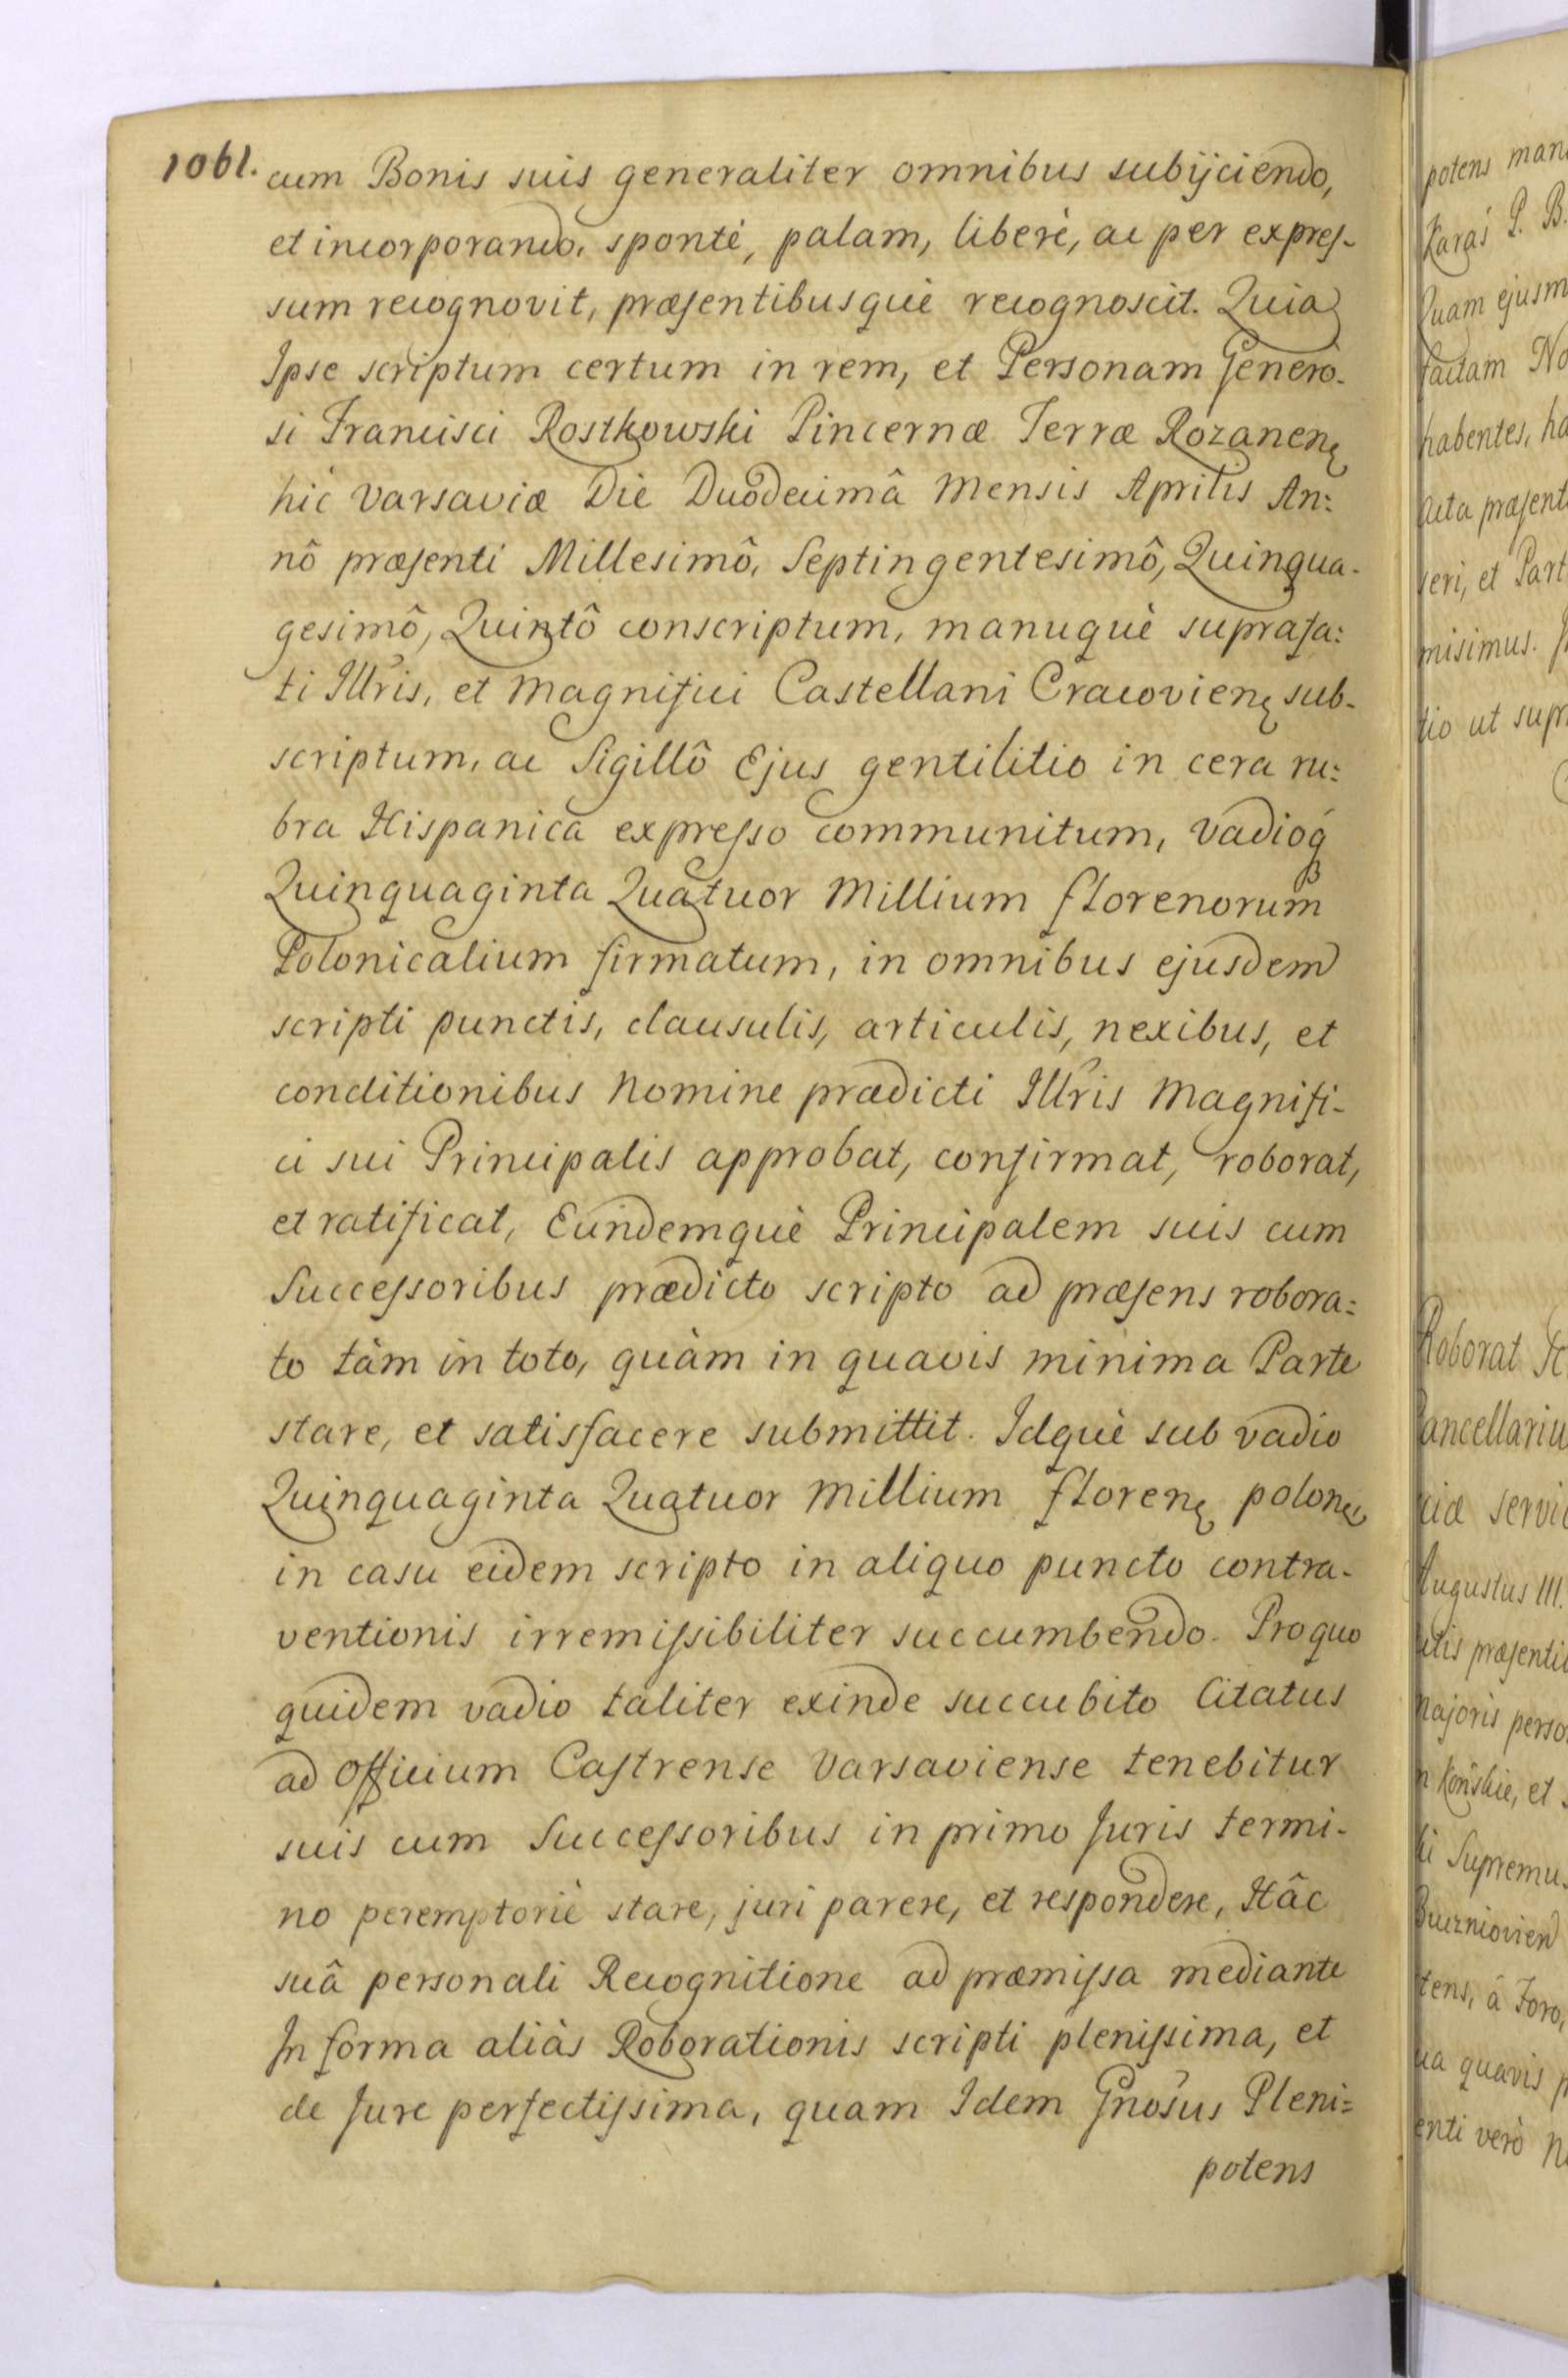 1061.
cum Bonis suis generaliter omnibus subijciendo,
et incorporando, spontè, palam, liberè, ac per expres-
sum recognovit, præsentibusquè recognoscit. Quia
Ipse scriptum certum in rem, et Personam Genero-
si Francisci Rostkowski Pincernæ Terræ Rozanenę
hic Varsaviæ Die Duodecimâ Mensis Aprilis An:
nô præsenti Millesimô, Septingentesimô, Quinqua-
gesimô, Quintô conscriptum, manuquè suprafa:
ti Illris, et Magnifici Castellani Cracovienę sub-
scriptum, ac Sigillô Ejus gentilitio in cera ru:
bra Hispanica expresso communitum, Vadioq́
Quinquaginta Quatuor Millium florenorum
Polonicalium firmatum, in omnibus ejusdem
scripti punctis, clausulis, articulis, nexibus, et
conditionibus Nomine prædicti Illris Magnifi-
ci sui Principalis approbat, confirmat, roborat,
et ratificat, Eundemquè Principalem suis cum
Successoribus prædicto scripto ad præsens robora:
to tàm in toto, quàm in quavis minima Parte
stare, et satisfacere submittit. Idquè sub vadio
Quinquaginta Quatuor Millium florenę polonę
in casu eidem scripto in aliquo puncto contra-
ventionis irremissibiliter succumbendo. Pro quo
quidem vadio taliter exinde succubito Citatus
ad Officium Castrense Varsaviense tenebitur
suis cum Successoribus in primo Juris termi-
no peremptoriè stare, juri parere, et respondere, Hâc
suâ personali Recognitione ad præmissa mediante
In forma aliàs Roborationis scripti plenissima, et
de Jure perfectissima, quam Idem Gnosus Pleni=
potens
potens
Karaś P. B.
Quam
factam
habentes,
Acta
seri, et
misimus.
tio ut
Roborat
Augustus III.
perso
Końskie, et
Supremu
â Foro,
quavis
enti verò